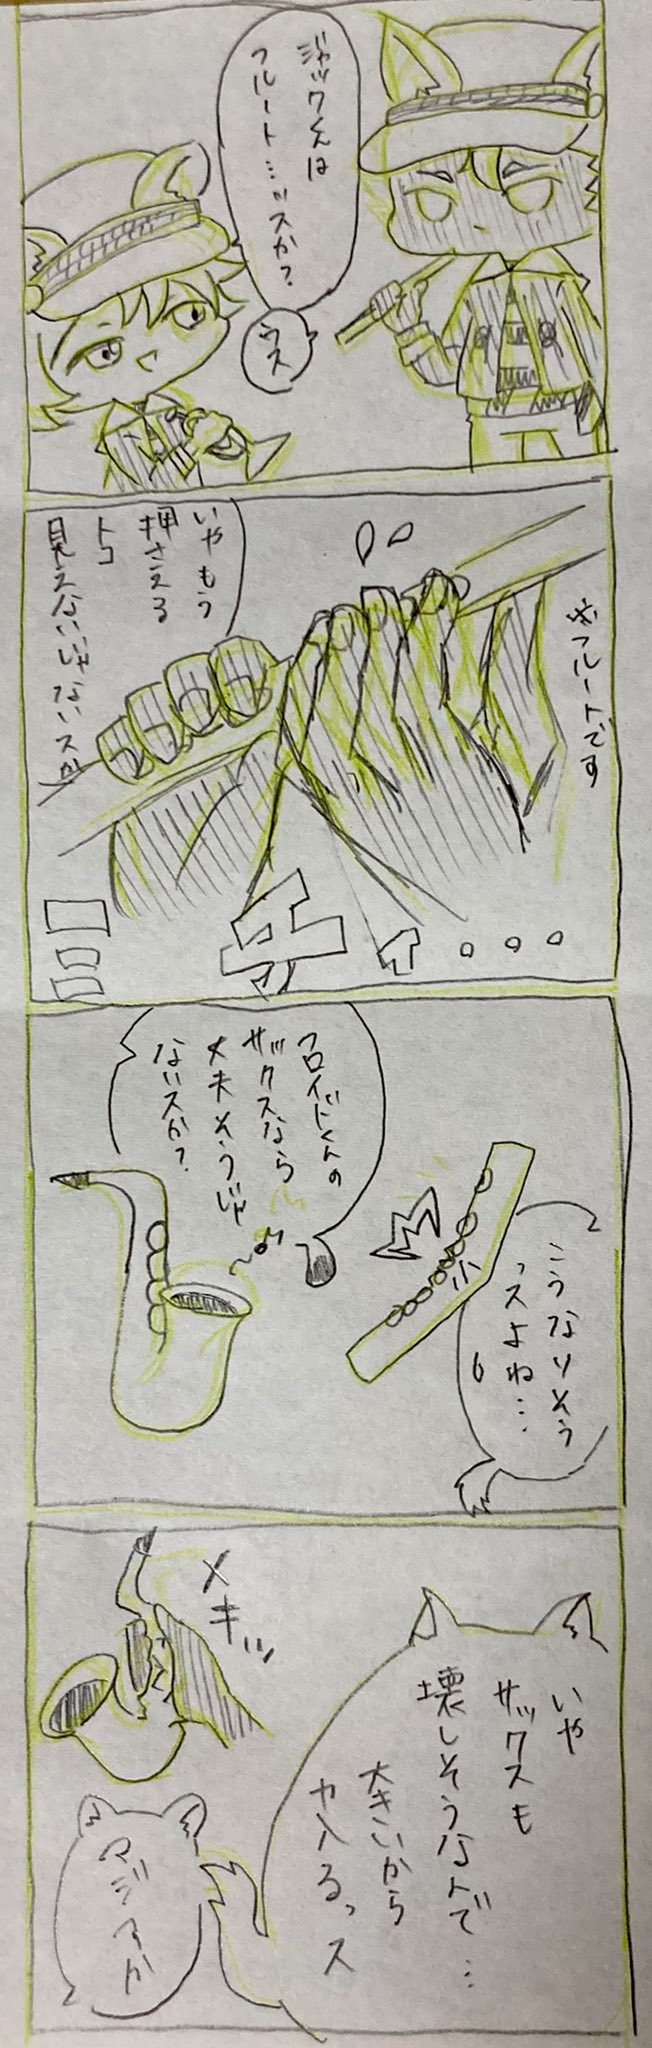 ジャックくんは
フルート…ッスか?
ウス
※フルートです
いやもう
押さえる
トコ
見えないじゃないスか
こうなりそう
っスよね…
フロイドくんの
サックスなら
大丈夫そうじゃ
ないスか?
メキッ
いや
サックスも
壊しそうなんで…
大きいから
力入るっス
マジスか